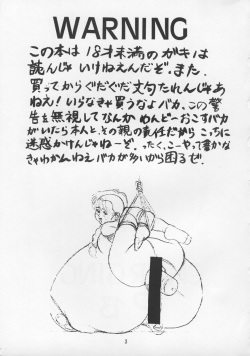 WARNING
この本は18才未満のガキは
読んじゃいけねえんだぞ。また、
買ってからぐだぐだ文句たれんじゃあ
ねえ！いらなきゃ買うなよバカ。この警
告を無視してなんかめんどーおこすバカ
がいたら本人と、その親の責任だからこっちに
迷惑かけんじゃねーぞ。ったく、こーやって書かな
きゃわかんねえバカが多いから困るぜ。
3